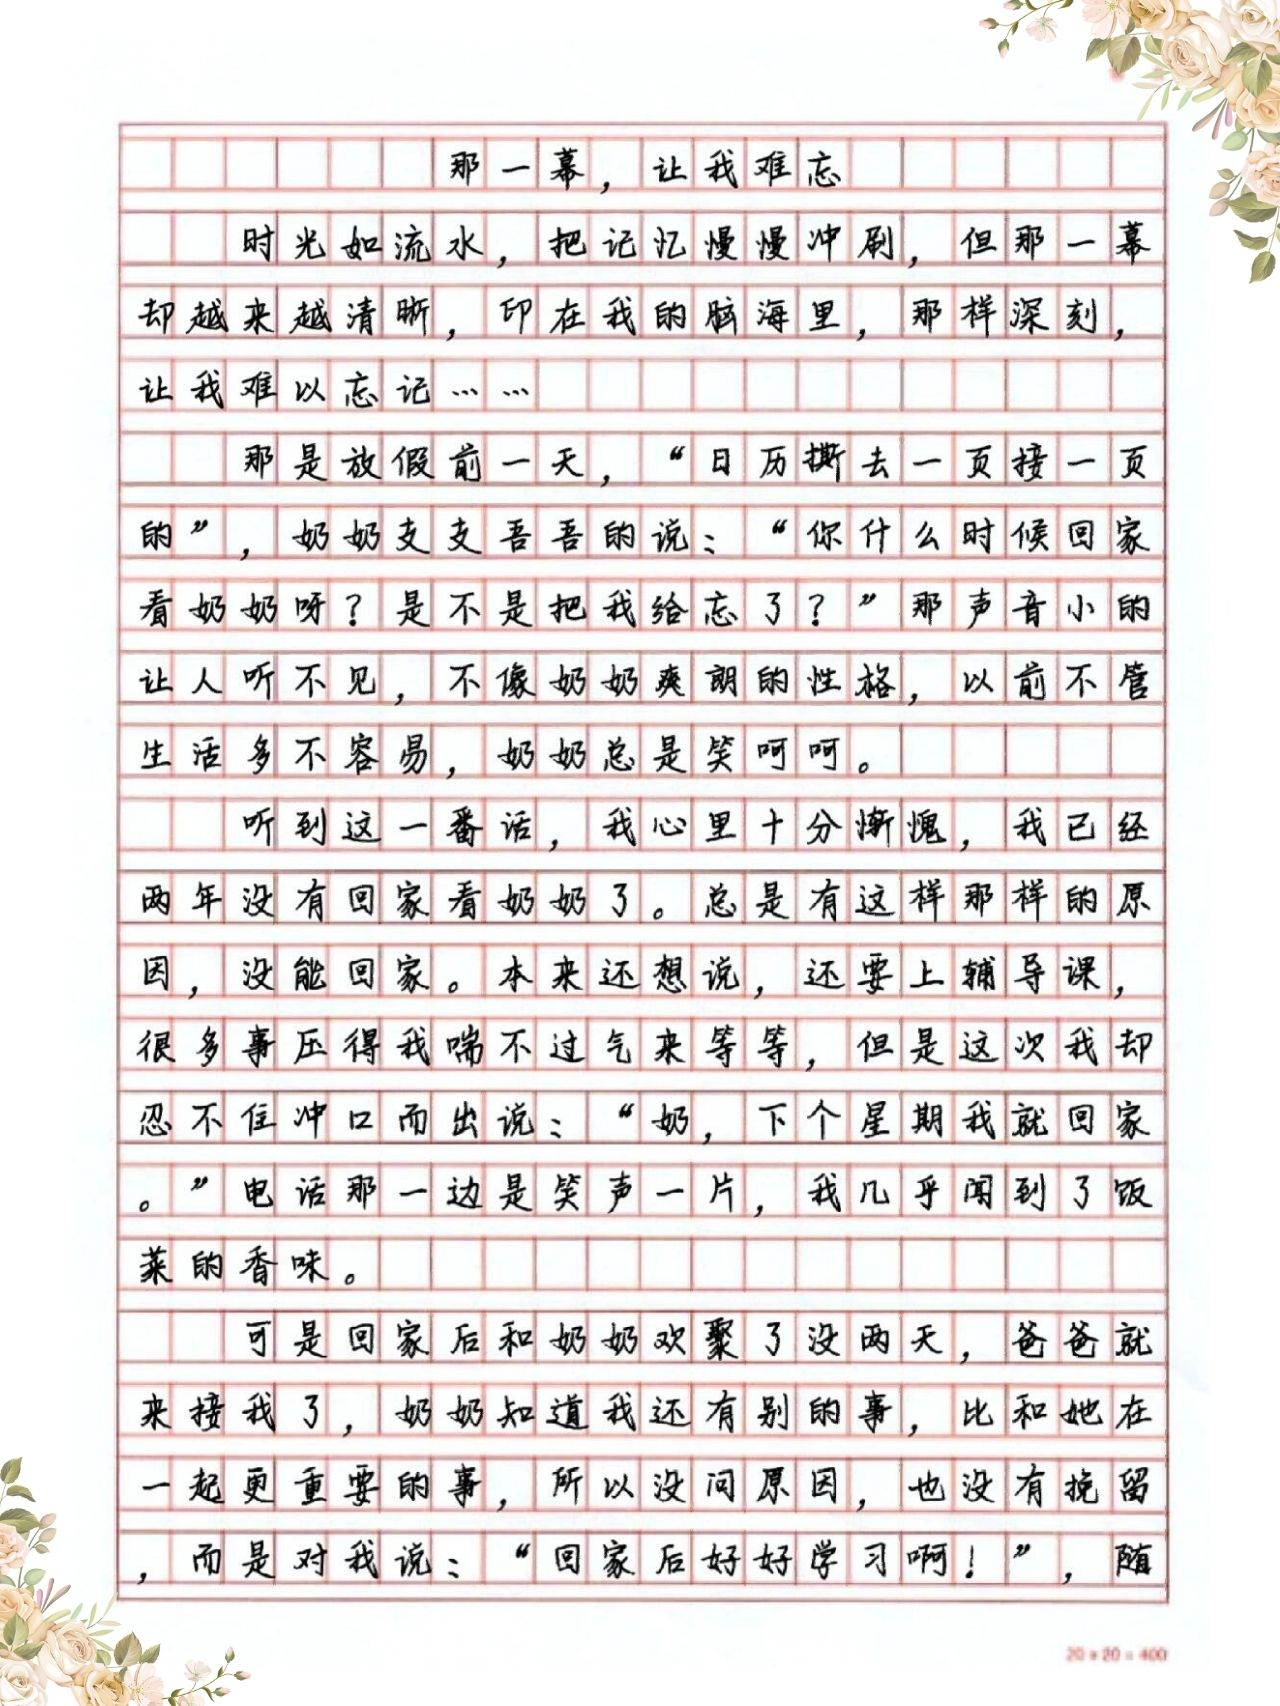 那一幕，让我难忘
时光如流水，把记忆慢慢冲刷，但那一幕
却越来越清晰，印在我的脑海里，那样深刻，
让我难以忘记……
那是放假前一天，“日历撕去一页接一页
的”，奶奶支支吾吾的说：“你什么时候回家
看奶奶呀？是不是把我给忘了？”那声音小的
让人听不见，不像奶奶爽朗的性格，以前不管
生活多不容易，奶奶总是笑呵呵。
听到这一番话，我心里十分惭愧，我已经
两年没有回家看奶奶了。总是有这样那样的原
因，没能回家。本来还想说，还要上辅导课，
很多事压得我喘不过气来等等，但是这次我却
忍不住冲口而出说：“奶，下个星期我就回家
。”电话那一边是笑声一片，我几乎闻到了饭
菜的香味。
可是回家后和奶奶欢聚了没两天，爸爸就
来接我了，奶奶知道我还有别的事，比和她在
一起更重要的事，所以没问原因，也没有挽留
，而是对我说：“回家后好好学习啊！”，随
20×20=400